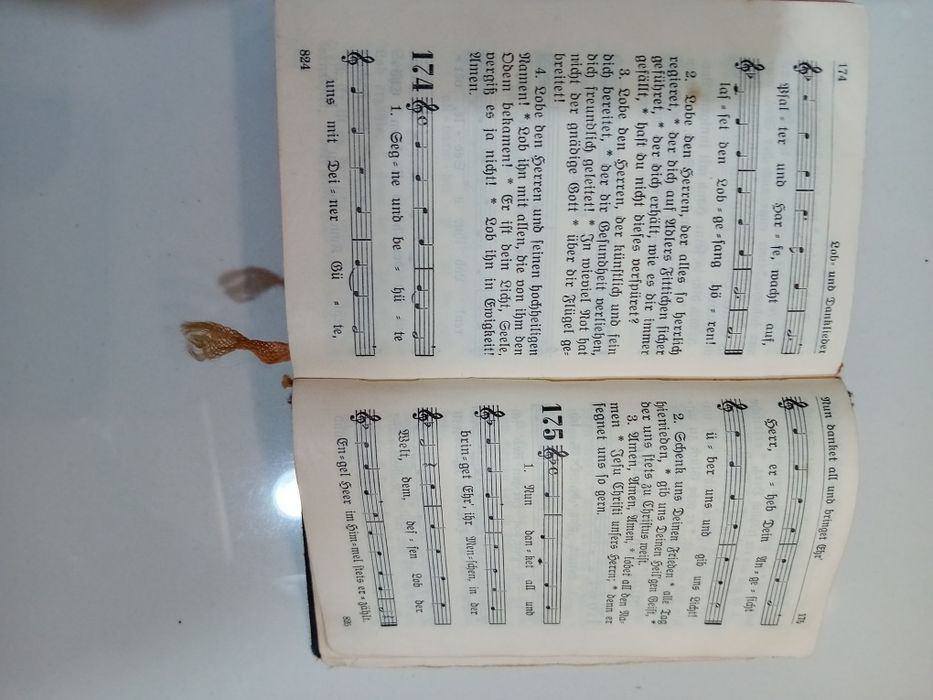 174
Lob= und Danklieder
Psal = ter und Har = fe, wacht auf,
las = set den Lob = ge = sang hö = ren!
2. Lobe den Herren, der alles so herrlich
regieret, * der dich auf Adlers Fittichen sicher
geführet, * der dich erhält, wie es dir immer
gefällt, * hast du nicht dieses verspüret?
3. Lobe den Herren, der künstlich und fein
dich bereitet, * der dir Gesundheit verliehen,
dich freundlich geleitet! * In wieviel Not hat
nicht der gnädige Gott * über dir Flügel ge=
breitet!
4. Lobe den Herren und seinen hochheiligen
Namen! * Lob ihn mit allen, die von ihm den
Odem bekamen! * Er ist dein Licht, Seele,
vergiß es ja nicht! * Lob ihn in Ewigkeit!
Amen.
174
1. Seg = ne und be = hü = te
uns mit Dei = ner Gü = te,
824
Nun danket all und bringet Ehr'
175
Herr, er = heb Dein An = ge = sicht
ü = ber uns und gib uns Licht!
2. Schenk uns Deinen Frieden * alle Tag
hienieden, * gib uns Deinen Heil'gen Geist, *
der uns stets zu Christus weist.
3. Amen, Amen, Amen, * lobet all den Na=
men * Jesu Christi unsers Herrn; * denn er
segnet uns so gern.
175
1. Nun dan = ket all und
brin = get Ehr', ihr Men = schen, in der
Welt, dem, des = sen Lob der
En = gel Heer im Him = mel stets er = zählt.
825